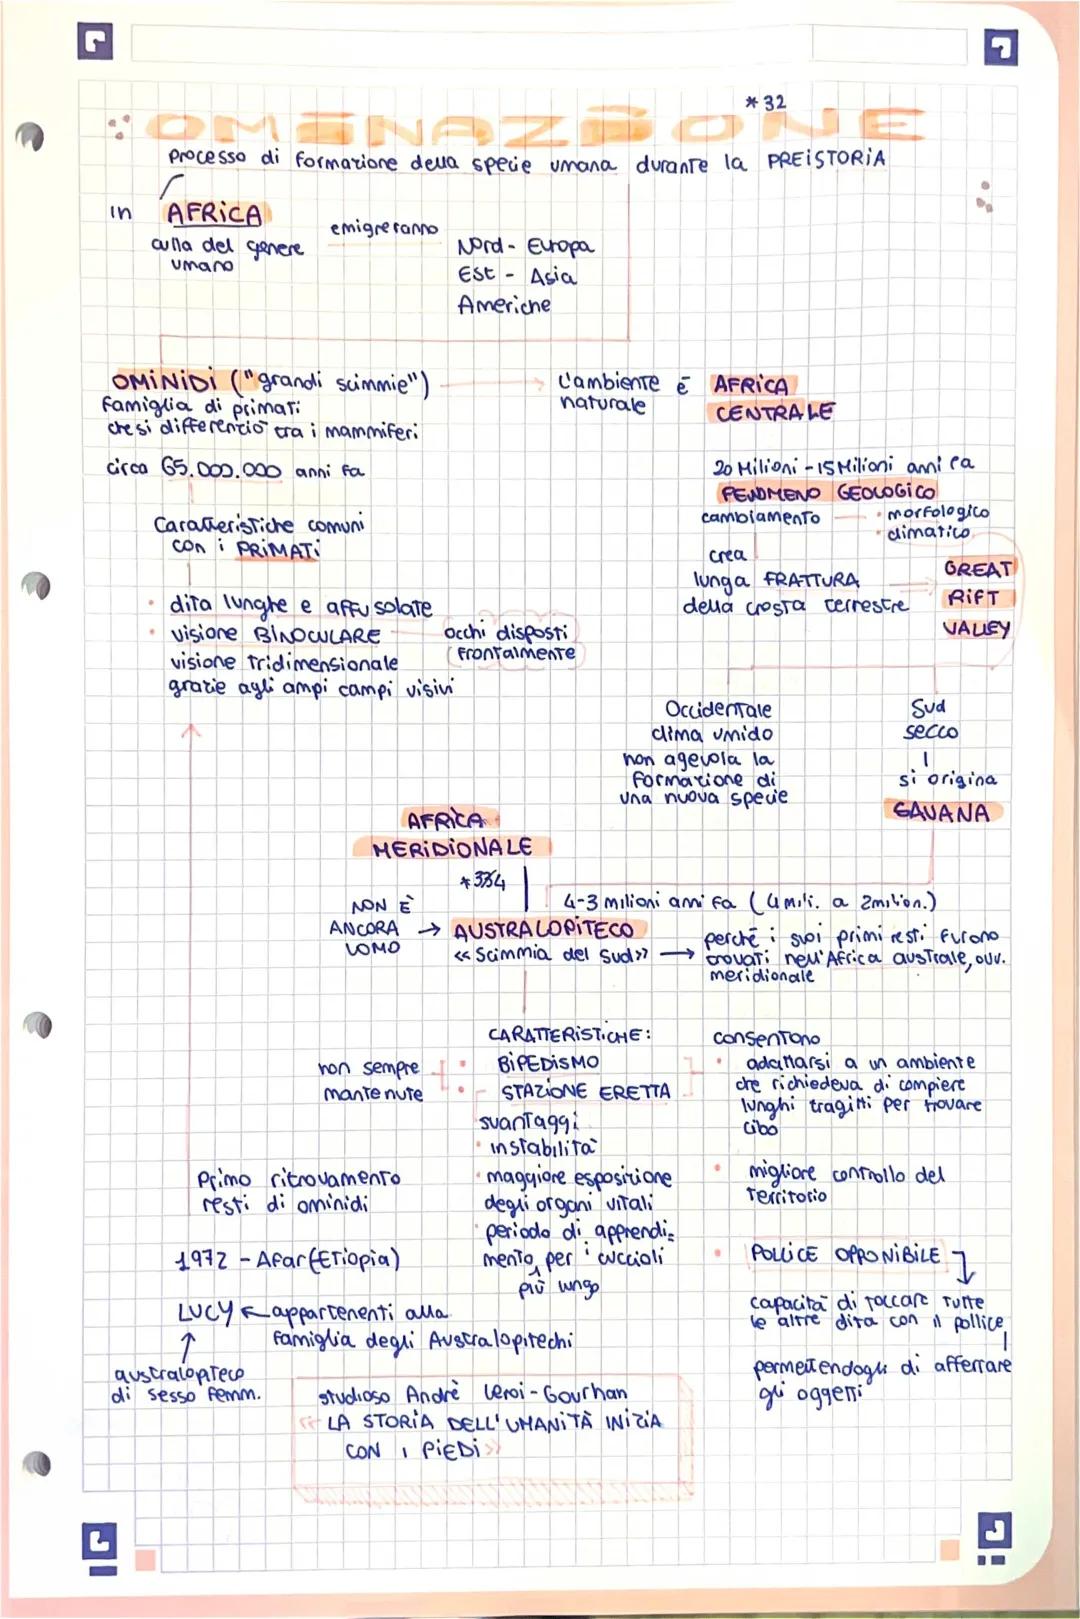 *32
OMINAZIONE
Processo di formazione della specie umana durante la PREISTORIA
in AFRICA
culla del genere
umano
emigreranno
Nord - Europa
Est - Asia
Americhe
OMINIDI ("grandi scimmie")
famiglia di primati
che si differenziò tra i mammiferi
circa 65.000.000 anni fa
L'ambiente è AFRICA
naturale CENTRALE
20 Milioni - 15 Milioni anni fa
FENOMENO GEOLOGICO
cambiamento
• morfologico
• climatico
crea
lunga FRATTURA
della crosta terrestre
GREAT
RIFT
VALLEY
Caratteristiche comuni
con i PRIMATI
• dita lunghe e affusolate
• visione BINOCULARE
occhi disposti
frontalmente
visione tridimensionale
grazie agli ampi campi visivi
Occidentale
clima umido
non agevola la
formazione di
una nuova specie
Sud
secco
si origina
SAVANA
AFRICA
MERIDIONALE
*334
4-3 milioni anni fa (4 mili. a 2milion.)
NON È
ANCORA
UOMO
→ AUSTRALOPITECO
«Scimmia del Sud» →
perché i suoi primi resti furono
trovati nell'Africa australe, ovv.
meridionale
CARATTERISTICHE:
• BIPEDISMO
• STAZIONE ERETTA
non sempre
mantenute
svantaggi
• instabilità
• maggiore esposizione
degli organi vitali
• periodo di apprendi=
mento per i cuccioli
più lungo
consentono
• adattarsi a un ambiente
che richiedeva di compiere
lunghi tragitti per trovare
cibo
• migliore controllo del
territorio
• POLLICE OPPONIBILE
capacità di toccare tutte
le altre dita con il pollice
permettendogli di afferrare
gli oggetti
Primo ritrovamento
resti di ominidi
1972 - Afar (ETiopia)
LUCY ← appartenenti alla
famiglia degli Australopitechi
australopiteco
di sesso femm.
studioso Andrè Leroi-Gourhan
«LA STORIA DELL'UMANITÀ INIZIA
CON I PIEDI»